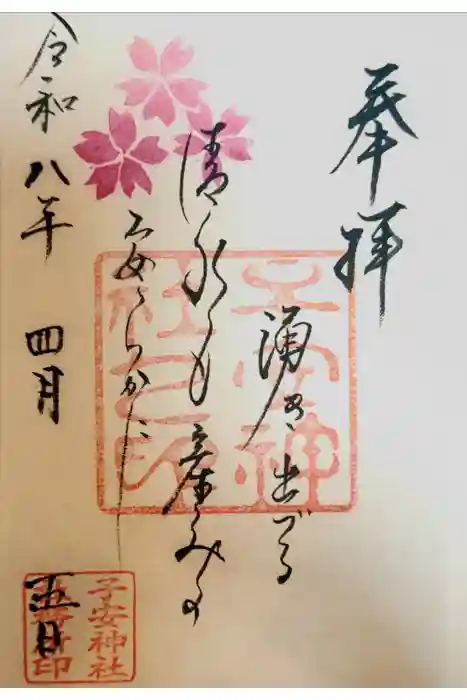 奉拝
湧き出づる
清水も産みも
安らかに
令和八年 四月 五日
子安神
社之印
子安神社
社務所印